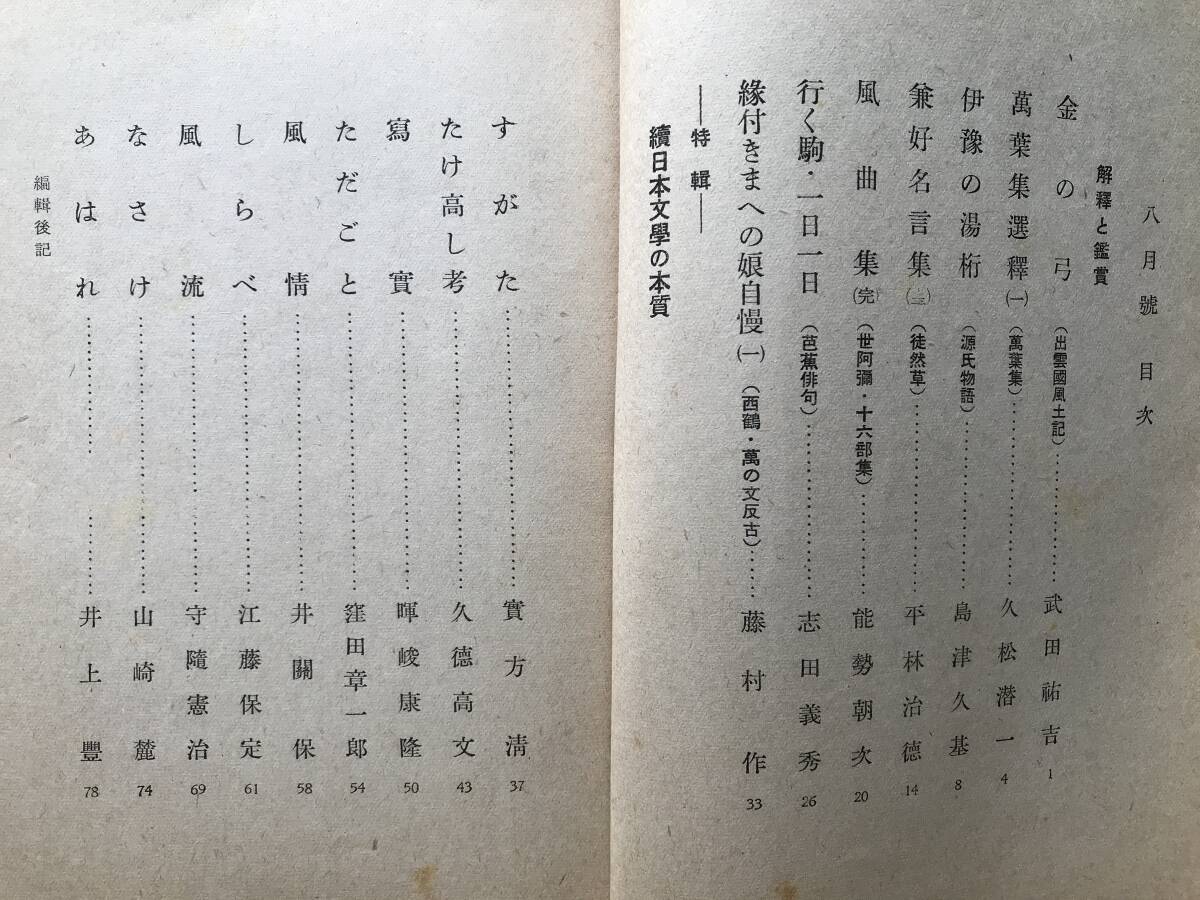 八月號 目次
解釋と鑑賞
金の弓(出雲國風土記)……武田祐吉 1
萬葉集選釋(一)(萬葉集)……久松潜一 4
伊豫の湯桁(源氏物語)……島津久基 8
兼好名言集(三)(徒然草)……平林治德 14
風曲集(完)(世阿彌・十六部集)……能勢朝次 20
行く駒・一日一日(芭蕉俳句)……志田義秀 26
緣付きまへの娘自慢(一)(西鶴・萬の文反古)……藤村作 33
——特輯——
續日本文學の本質
すがた……實方淸 37
たけ高し考……久德高文 43
寫實……暉峻康隆 50
ただごと……窪田章一郎 54
風情……井關保 58
しらべ……江藤保定 61
風流……守隨憲治 69
なさけ……山崎麓 74
あはれ……井上豐 78
編輯後記